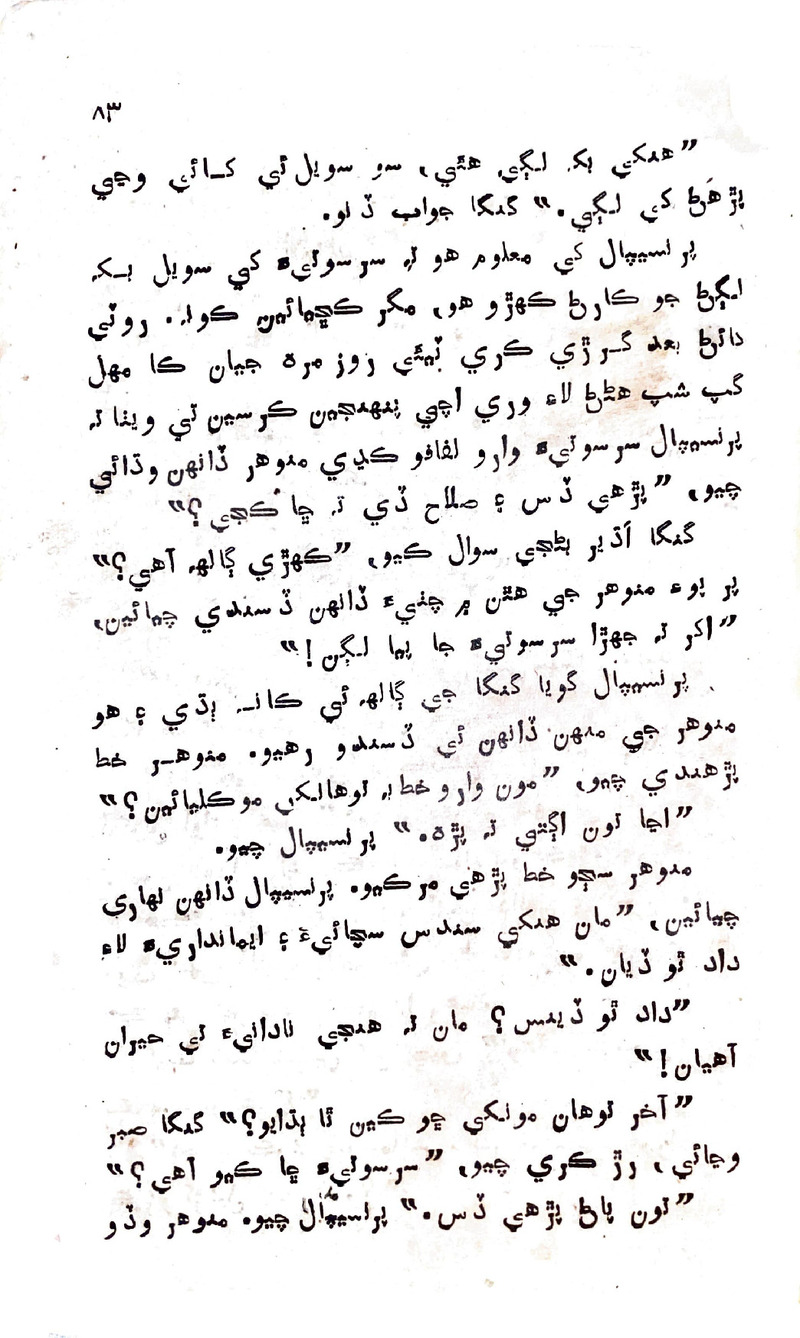 ۸۳
”هنکي بک لڳي هئي، سو سويل ئي کائي وڃي
پڙهڻ کي لڳي.“ گنگا جواب ڏنو.
پرنسيپال کي معلوم هو تہ سرسوتيءَ کي سويل بک
لڳڻ جو ڪارڻ ڪهڙو هو، مگر ڪڇيائين ڪونہ. روٽي
کائڻ بعد گرڙي ڪري ٽيئي روز مرہ جيان ڪا مهل
گپ شپ هڻڻ لاءِ وري اچي پنهنجين ڪرسين تي ويٺا تہ
پرنسيپال سرسوتيءَ وارو لفافو ڪڍي منوهر ڏانهن وڌائي
چيو، ”پڙهي ڏس ۽ صلاح ڏي تہ ڇا ڪجي؟“
گنگا اڌير بڻجي سوال ڪيو، ”ڪهڙي ڳالهہ آهي؟“
پر پوءِ منوهر جي هٿن ۾ چٺيءَ ڏانهن ڏسندي چيائين،
”اکر تہ جهڙا سرسوتيءَ جا پيا لڳن!“
پرنسيپال گويا گنگا جي ڳالهہ ئي ڪانہ ٻڌي ۽ هو
منوهر جي منهن ڏانهن ئي ڏسندو رهيو. منوهر خط
پڙهندي چيو، ”مون وارو خط بہ توهانکي موڪليائين؟“
”اڃا تون اڳتي تہ پڙہ.“ پرنسيپال چيو.
منوهر سڄو خط پڙهي مرڪيو. پرنسيپال ڏانهن نهاري
چيائين، ”مان هنکي سندس سچائيءَ ۽ ايمانداريءَ لاءِ
داد ٿو ڏيان.“
”داد ٿو ڏينس؟ مان تہ هنجي نادانيءَ تي حيران
آهيان!“
”آخر توهان مونکي ڇو ڪين ٿا ٻڌايو؟“ گنگا صبر
وڃائي، رڙ ڪري چيو، ”سرسوتيءَ ڇا ڪيو آهي؟“
”تون پاڻ پڙهي ڏس.“ پرنسيپال چيو. منوهر وڏو